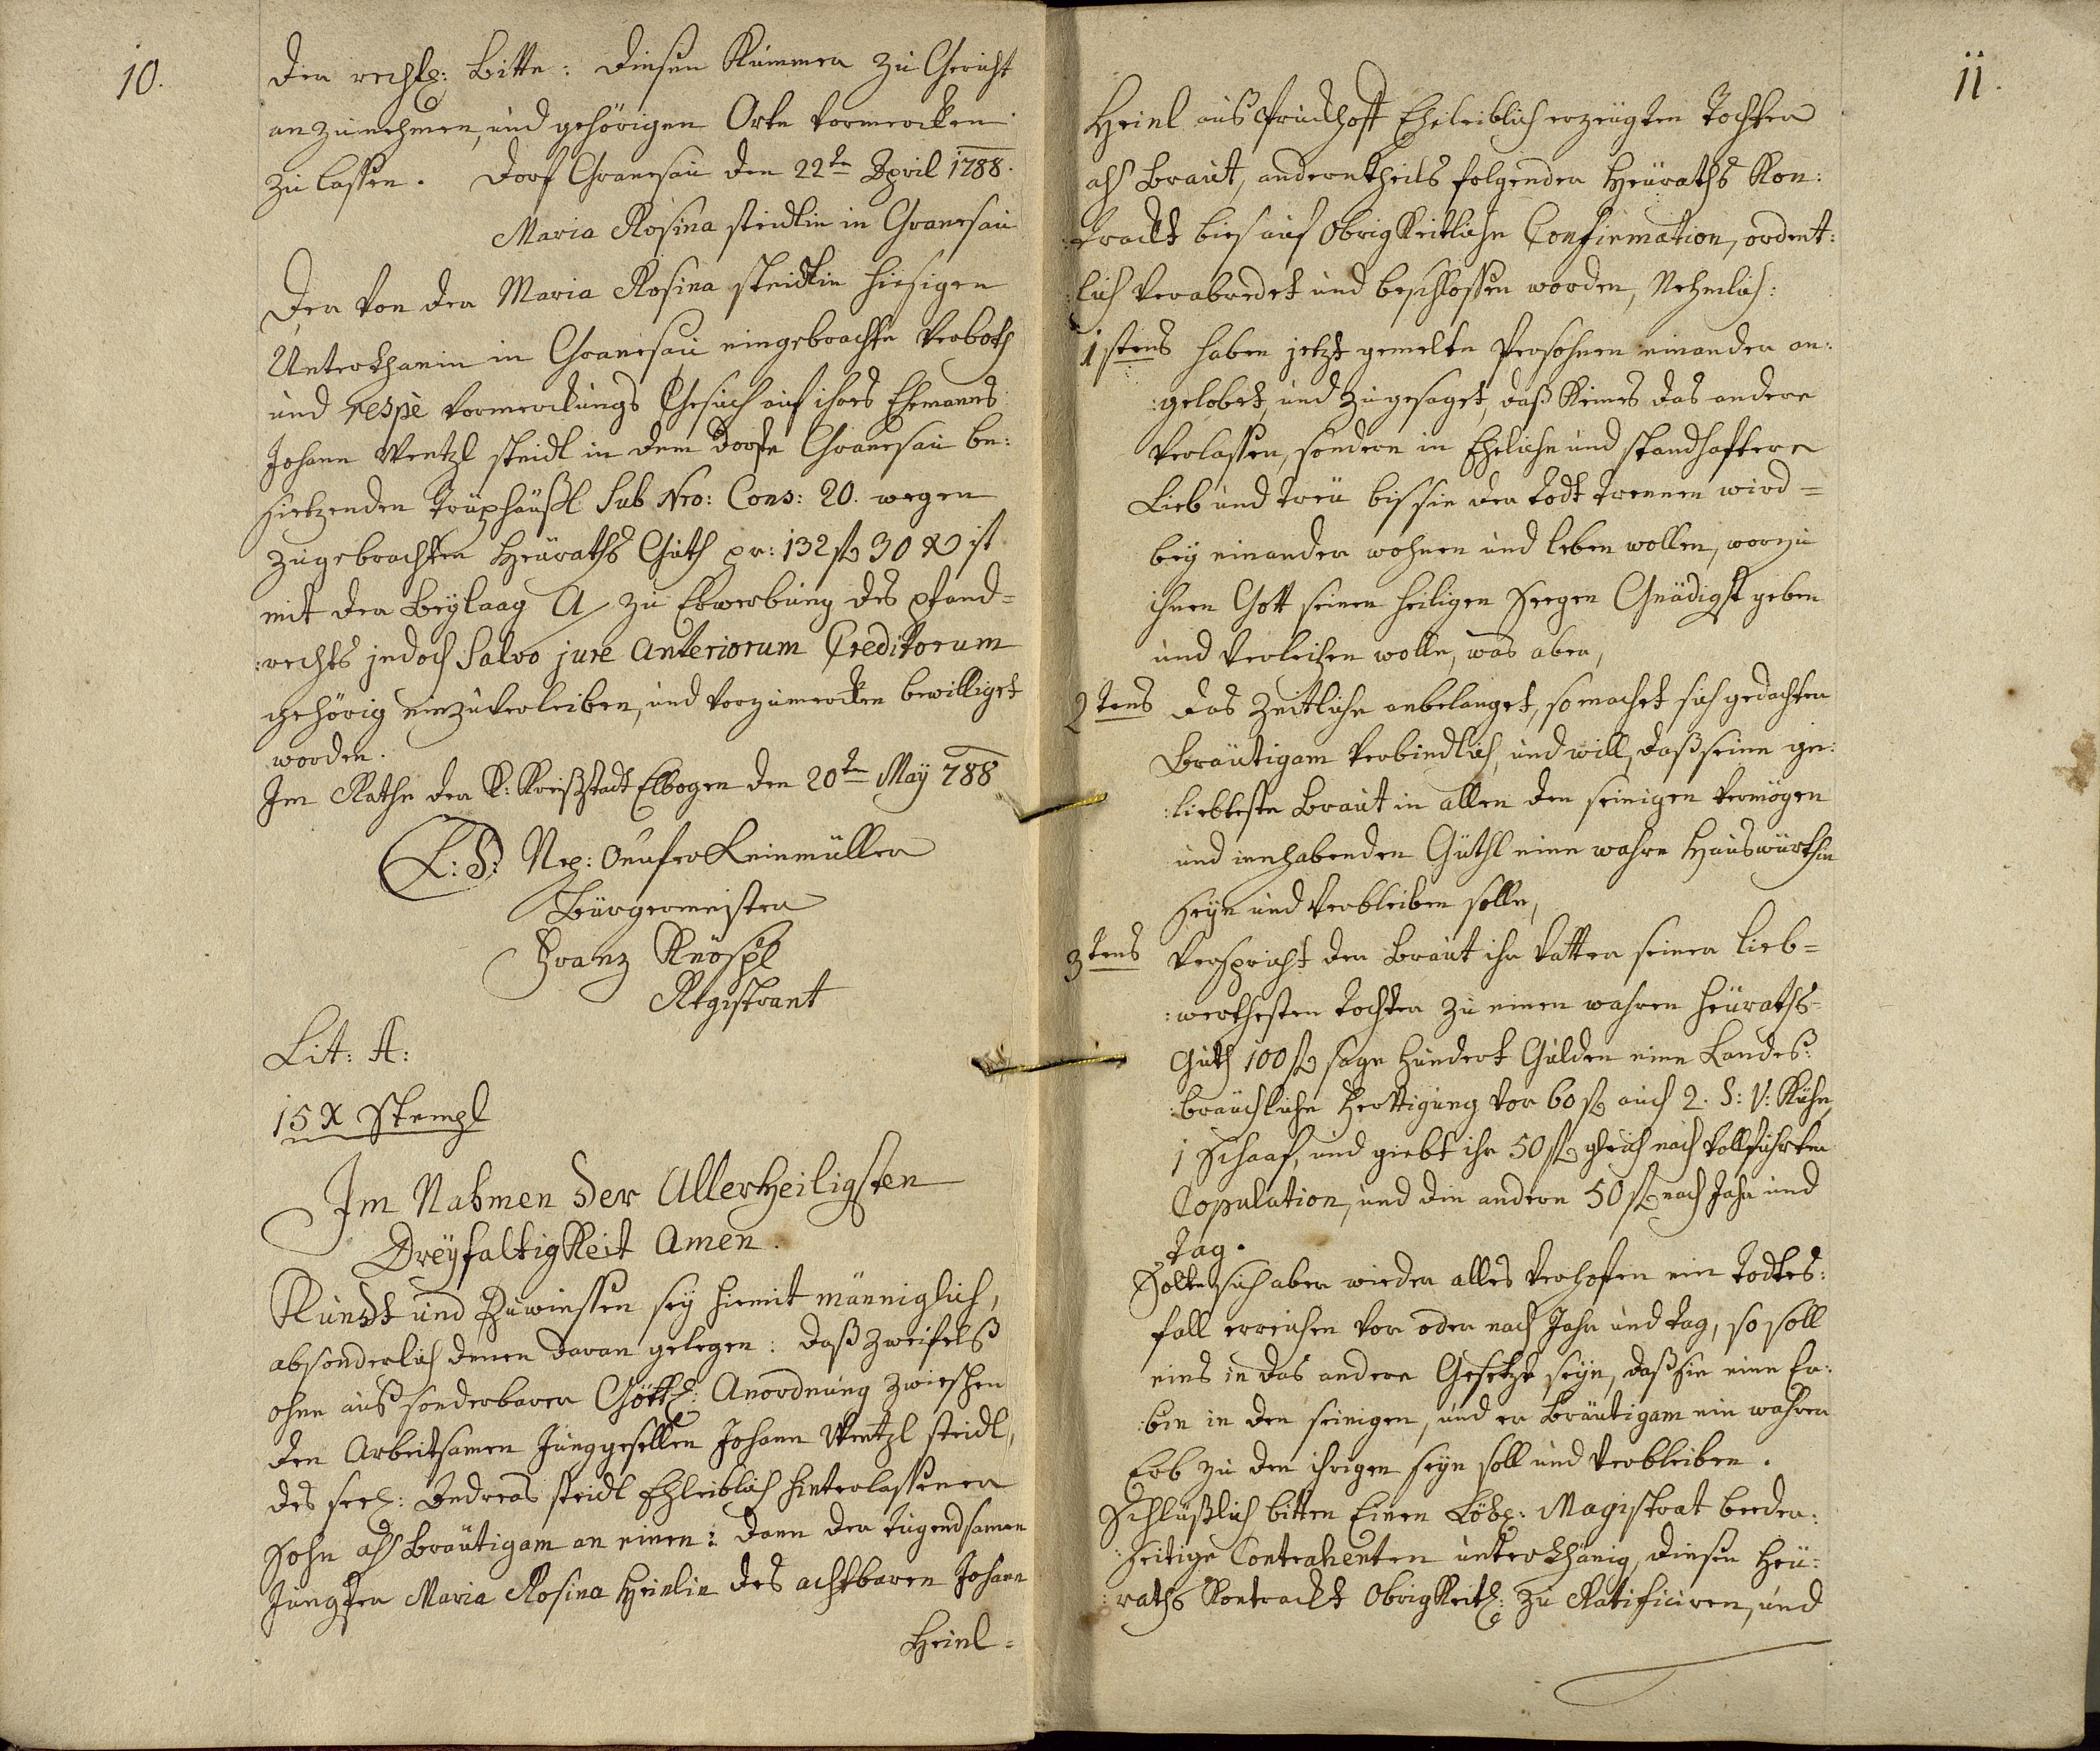 10.
der rechtl: Bitte: diesen Kummer zu Gericht
anzunehmen, und gehörigen Orts vormercken
zu lassen. Dorf Granesau den 22t April 1788.
Maria Rosina Steidlin in Granesau
Der von der Maria Rosina Steidlin hiesigen
Unterthanin in Granesau eingebrachte Verboth
und respè Vormerckungs Gesuch auf ihres Ehemanns
Johann Wentzl Steidl in dem Dorfe Granesau be:
sietzenden Trüphäußl Sub Nro: Cons: 20. wegen
zugebrachten Heuraths Guth pr: 132 fl 30 x ist
mit der Beylaag A zu Erwerbung des Pfand=
:rechts jedoch Salvo jure anteriorum Creditorum
gehörig einzuverleiben, und vorzumercken bewilliget
worden.
Im Rathe der K: Kreißstadt Elbogen den 20t May 788
L: S: Nep: Leinmüller
Bürgermeister
Franz Knöspl
Registrant
Lit: A:
15 x Stempl
Im Nahmen der Allerheiligsten
Dreyfaltigkeit Amen.
Kundt und Zuwiessen sey hiemit männiglich,
absonderlich denen daran gelegen: daß zweifelß
ohne auß sonderbarer Göttl: Anordnung zwieschen
den Arbeitsamen Junggesellen Johann Wentzl Steidl,
des seel: Andreas Steidl Ehleiblich hinterlassener
Sohn als Bräutigam an einen: dann der tugendsamen
Jungfer Maria Rosina Heinlin des achtbaren Johann
Heinl=
11.
Heinl aus Eheleiblich erzeugten Tochter
als Braut, anderntheils folgender Heuraths Kon:
:trackt bies auf Obrigkeitliche Confirmation, ordent:
:lich verabredet und beschlossen worden, Nehmlich:
1stens haben jetzt gemelte Persohnen einander an:
:gelobet, und zugesaget, daß keines das andere
verlassen, sondern in Ehelicher und standhafter
Lieb und Treu bis sie der Todt trennen wird=
bey einander wohnen und leben wollen, worzu
ihnen Gott seinen heiligen Seegen Gnädigst geben
und verleihen wolle, was aber,
2tens das Zeitliche anbelanget, so machet sich gedachter
Bräutigam verbindlich, und will, daß seine ge:
:liebteste Braut in allen den seinigen Vermögen
und innhabenden Güthl eine wahre Hauswürthin
seyn und verbleiben solle,
3tens Verspricht der Braut ihr Vatter seiner lieb=
:werthesten Tochter zu einen wahren Heuraths=
Guth 100 fl sage Hundert Gulden eine Landes:
:bräuchliche Herttigung vor 60 fl auch 2. S: V: Kühe,
1 Schaaf, und giebt ihr 50 fl gleich nach vollführter
Copulation, und die andern 50 fl nach Jahr und
Tag.
Solte sich aber wieder alles Verhofen ein Todtes:
fall erreichen vor oder nach Jahr und Tag, so soll
eins in das andere Gesetzt seyn, daß sie eine Er:
:bin in den seinigen, und er Bräutigam ein wahrer
Erb zu den ihrigen seyn soll und verbleiben.
Schlüßlich bitten Einen Löbl: Magistrat beeder:
:seitige Contrahenten unterthänig, diesen Heu:
:raths Kontrackt Obrigkeitl: zu Ratificiren, und